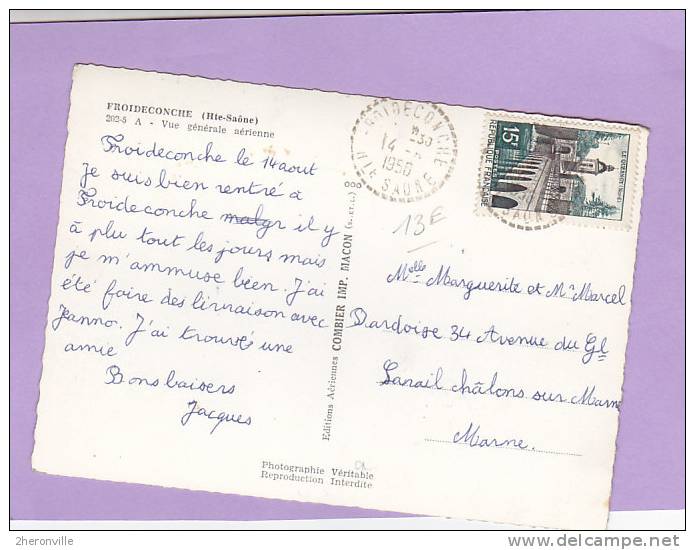 FROIDECONCHE (Hte-Saône)
202-5 A - Vue générale aérienne
Froideconche le 14 aout
Je suis bien rentré à
Froideconche malgr il y
à plu tout les jours mais
je m'ammuse been. J'ai
été faire des livraison avec
Jeanno. J'ai trouvés une
amie
Bons baisers
Jacques
Editions Aériennes COMBIER IMP. MACON
Photographie Véritable
Reproduction Interdite
FROIDECONCHE
14 - 8
HTE SAÔNE
15F
POSTES
REPUBLIQUE FRANÇAISE
LE QUESNOY
13 E
Melle Margueritz et Mr Marcel
Dardoise 34 Avenue du Gl
Sarail châlons sur Marne
Marne.
2heronville
delcampe.net